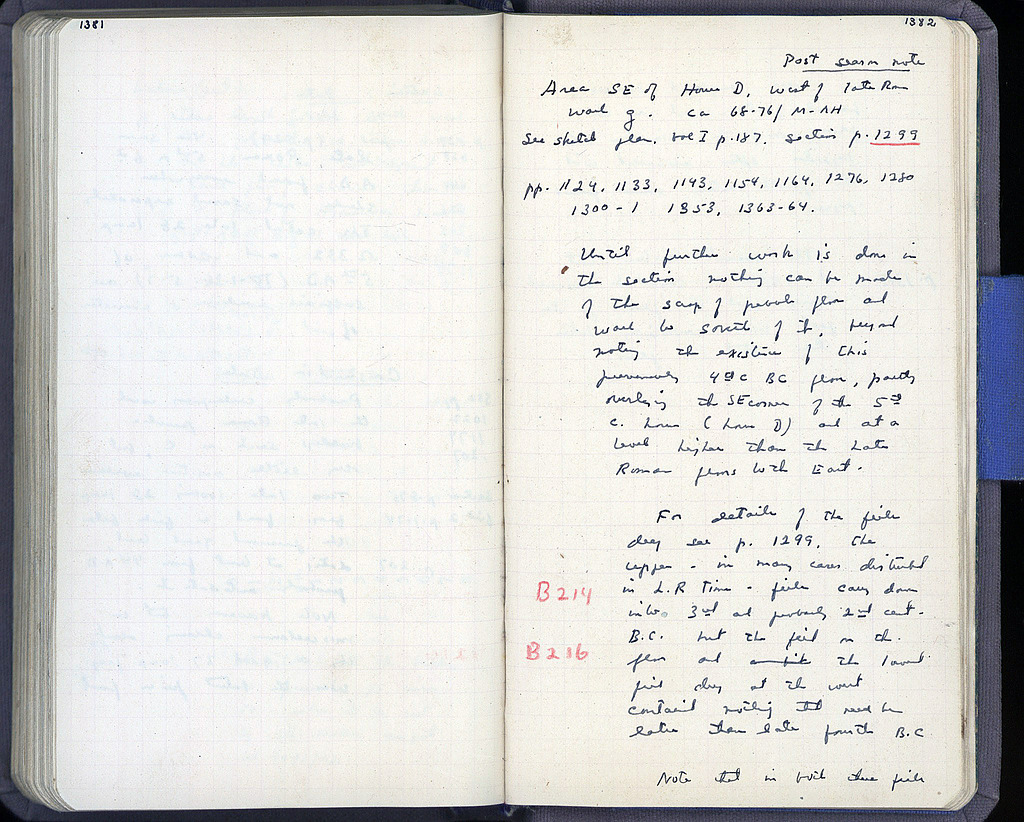 1381
1382
Post season note
Area SE of House D, west of late Rom
wall g. ca 68-76/ M-AH
See sketch plan. Vol I p.187. section p.1299
pp. 1124, 1133, 1143, 1154, 1164, 1276, 1280
1300-1 1353, 1363-64.
Until further work is done in
the section nothing can be made
of the scrap of pebble floor and
wall to south of it, beyond
noting the existence of this
4th c BC floor, partly
overlying the SE corner of the 5th
c. house (house D) and at a
level higher than the Late
Roman floors to the East.
For details of the fills
dug see p. 1299. The
upper - in many cases disturbed
in L.R Time - fills carry down
into 3rd and probably 2nd cent.
B.C. but the fill on the
floor and the lowest
fill dug at the west
contained nothing that need be
later than late fourth B.C
Note that in both these fills
B214
B216